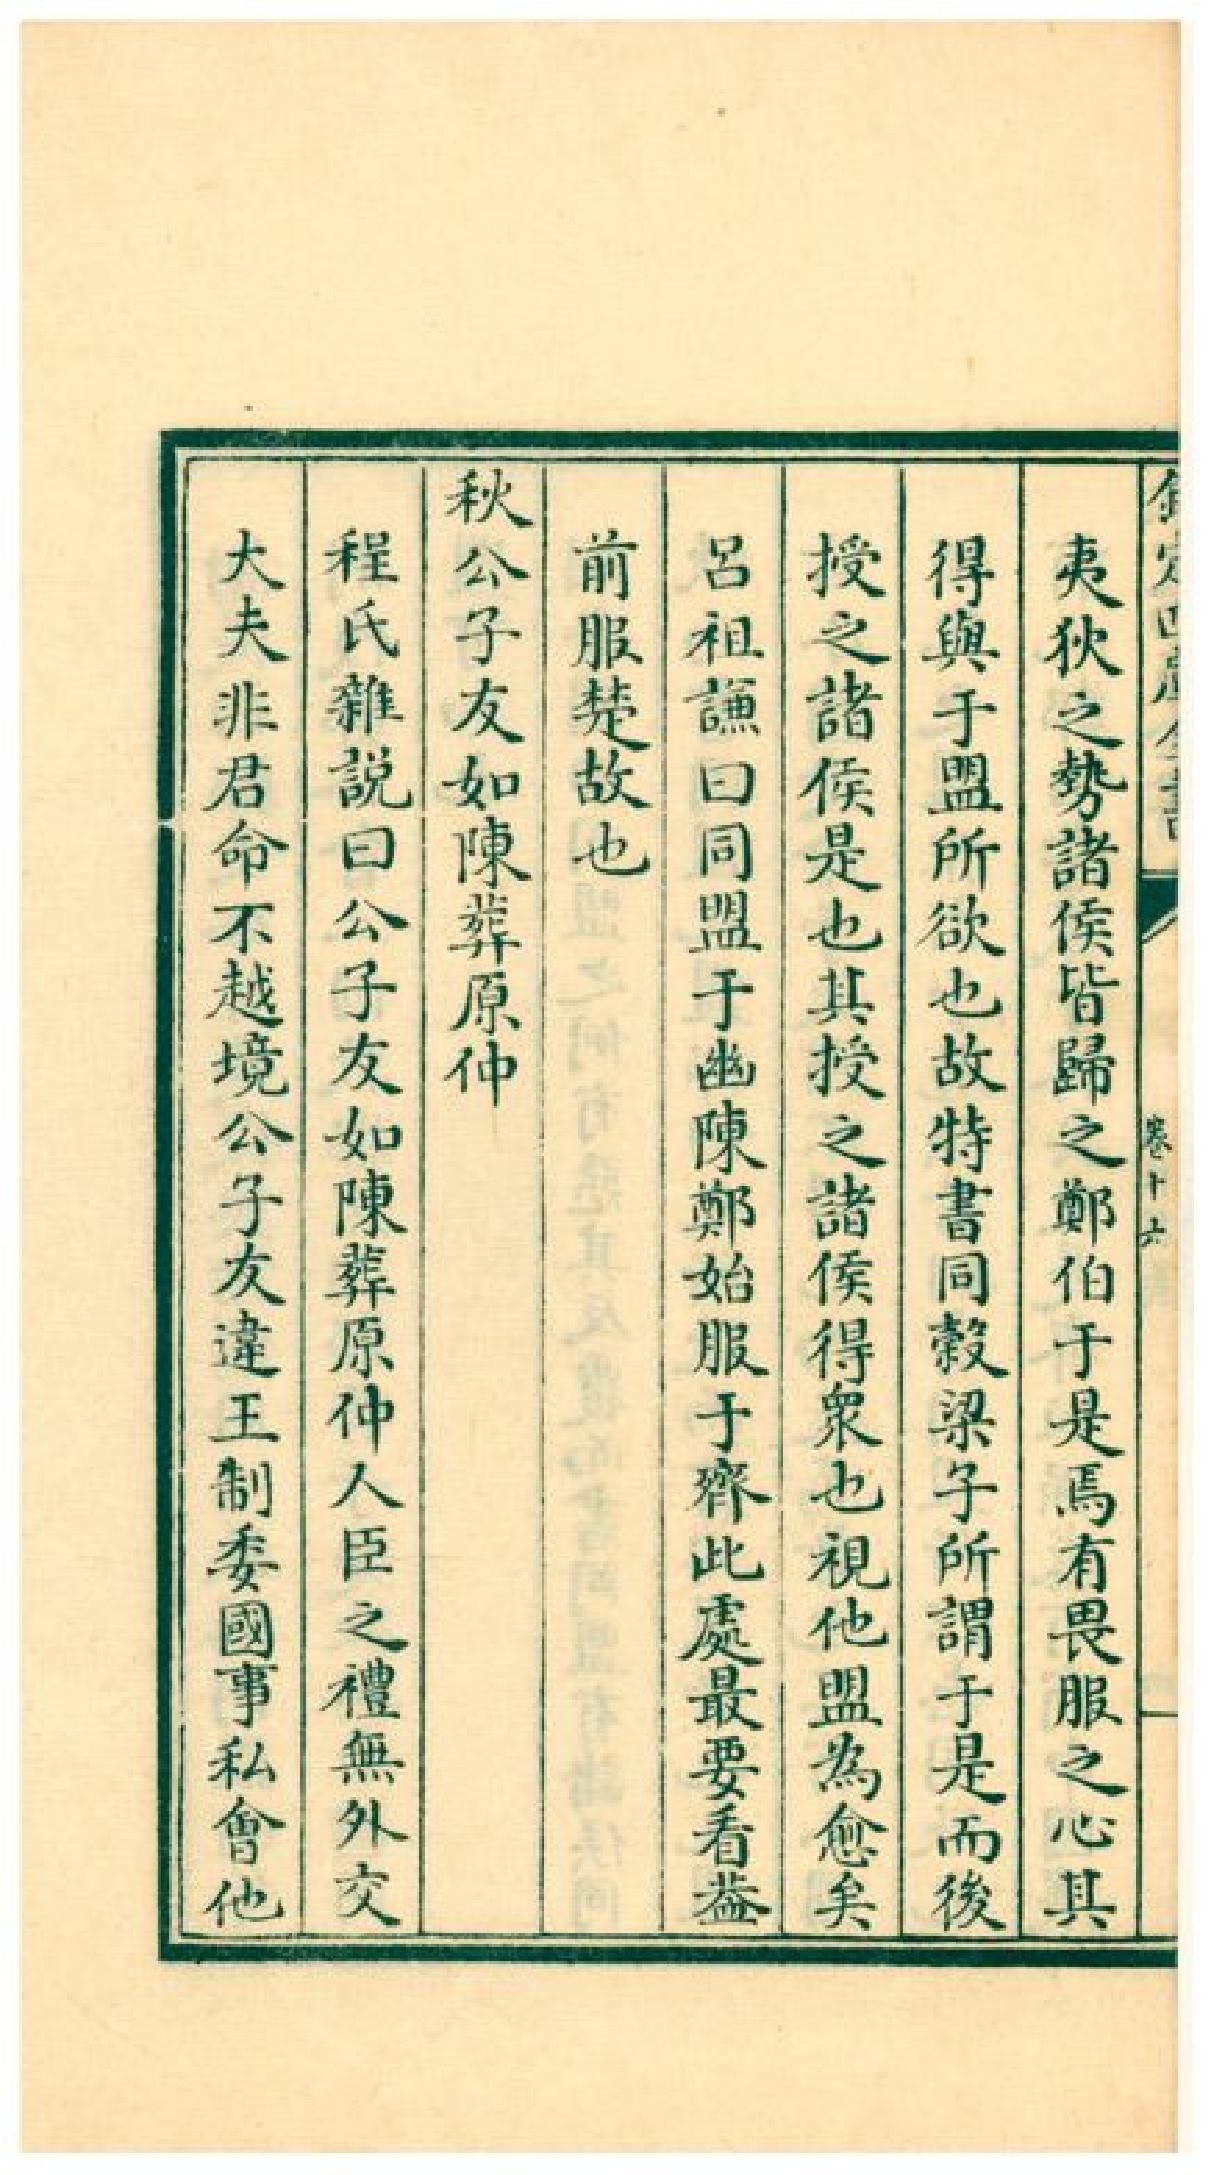 欽定四庫全書
卷十六
夷狄之勢諸侯皆歸之鄭伯于是焉有畏服之心其
得與于盟所欲也故特書同榖梁子所謂于是而後
授之諸侯是也其授之諸侯得衆也視他盟為愈矣
呂祖謙曰同盟于幽陳鄭始服于齊此處最要看葢
前服楚故也
秋公子友如陳葬原仲
程氏雜說曰公子友如陳葬原仲人臣之禮無外交
大夫非君命不越境公子友違王制委國事私會他